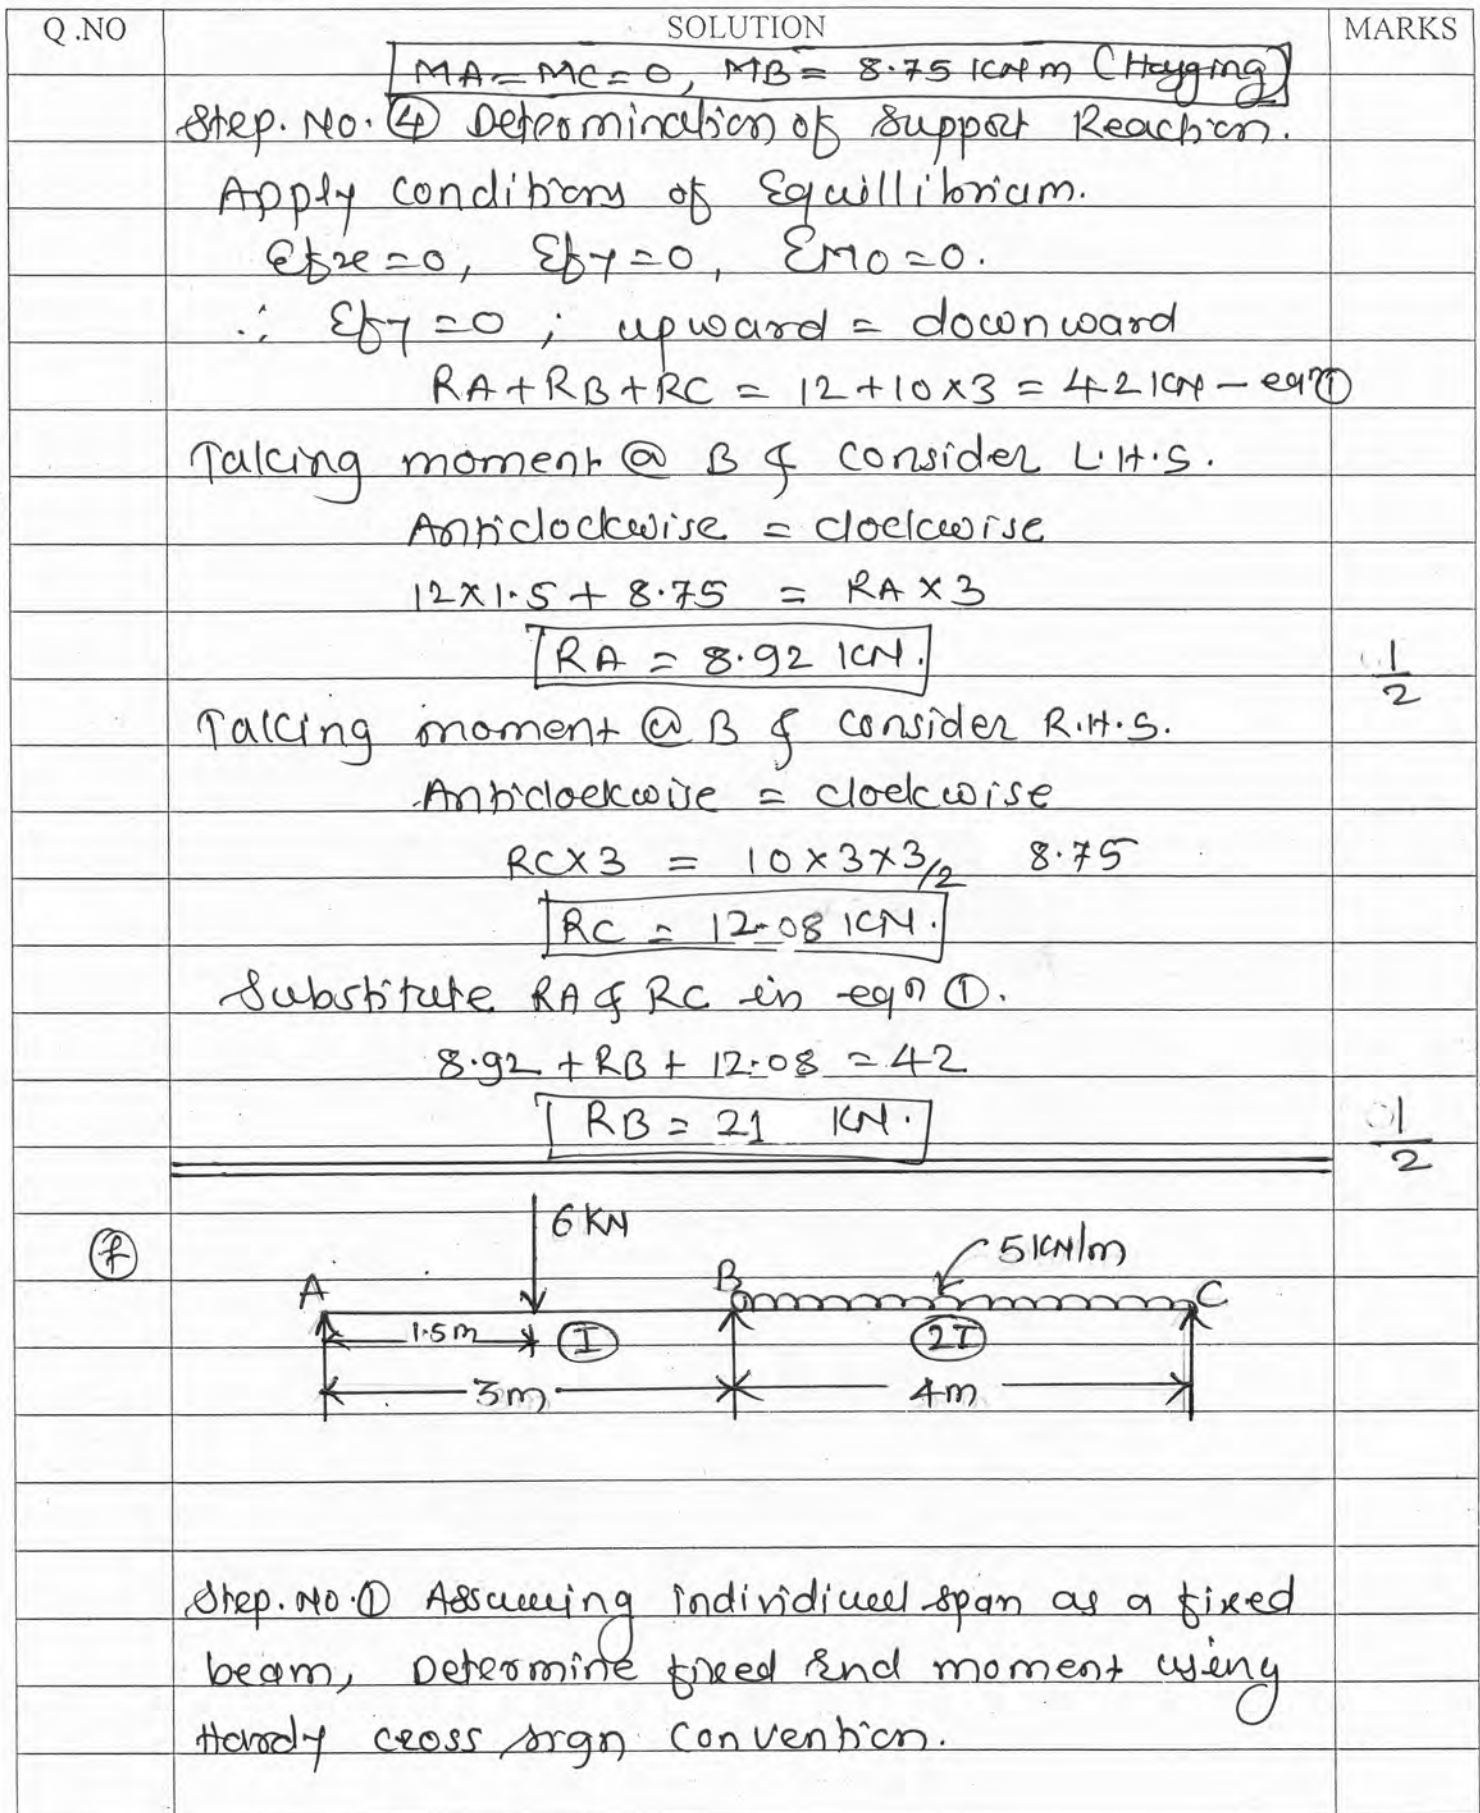 Q.NO SOLUTION MARKS
MA = MC = 0, MB = 8.75 KNm (Hogging)
Step. No. ④ Determination of Support Reaction.
Apply conditions of Equillibrium.
Σfx = 0, Σfy = 0, ΣM0 = 0.
∴ Σfy = 0 ; upward = downward
RA + RB + RC = 12 + 10 × 3 = 42 KN - eqn ①
Taking moment @ B & consider L.H.S.
Anticlockwise = clockwise
12 × 1.5 + 8.75 = RA × 3
RA = 8.92 KN.
1/2
Taking moment @ B & consider R.H.S.
Anticlockwise = clockwise
RC × 3 = 10 × 3 × 3/2 8.75
RC = 12.08 KN.
Substitute RA & RC in eqn ①.
8.92 + RB + 12.08 = 42
RB = 21 KN.
1/2
(f)
6 KN
5 KN/m
A B C
1.5m I 2I
3m 4m
Step. No. ① Assuming individiuel span as a fixed
beam, Determine fixed End moment using
Hardy cross sign convention.